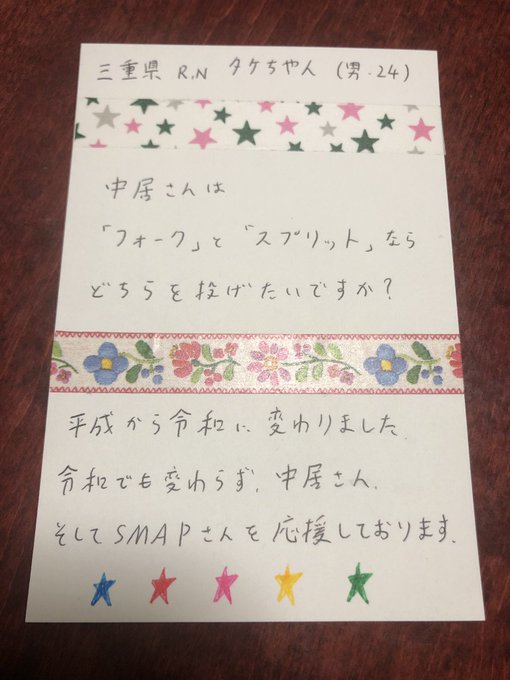 三重県 R.N タケちゃん (男・24)
中居さんは
「フォーク」と「スプリット」なら
どちらを投げたいですか?
平成から令和に変わりました.
令和でも変わらず、中居さん、
そしてSMAPさんを応援しております.